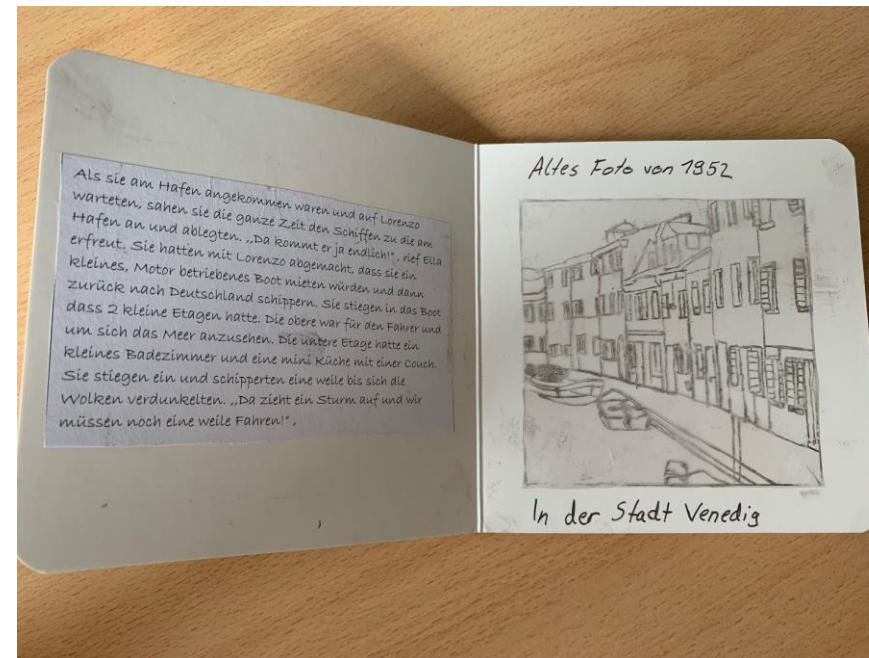 Als sie am Hafen angekommen waren und auf Lorenzo
warteten, sahen sie die ganze Zeit den Schiffen zu die am
Hafen an und ablegten. „Da kommt er ja endlich!", rief Ella
erfreut. Sie hatten mit Lorenzo abgemacht, dass sie ein
kleines, Motor betriebenes Boot mieten würden und dann
zurück nach Deutschland schippern. Sie stiegen in das Boot
dass 2 kleine Etagen hatte. Die obere war für den Fahrer und
um sich das Meer anzusehen. Die untere Etage hatte ein
kleines Badezimmer und eine mini Küche mit einer Couch.
Sie stiegen ein und schipperten eine weile bis sich die
Wolken verdunkelten. „Da zieht ein Sturm auf und wir
müssen noch eine weile Fahren!",
Altes Foto von 1952
In der Stadt Venedig